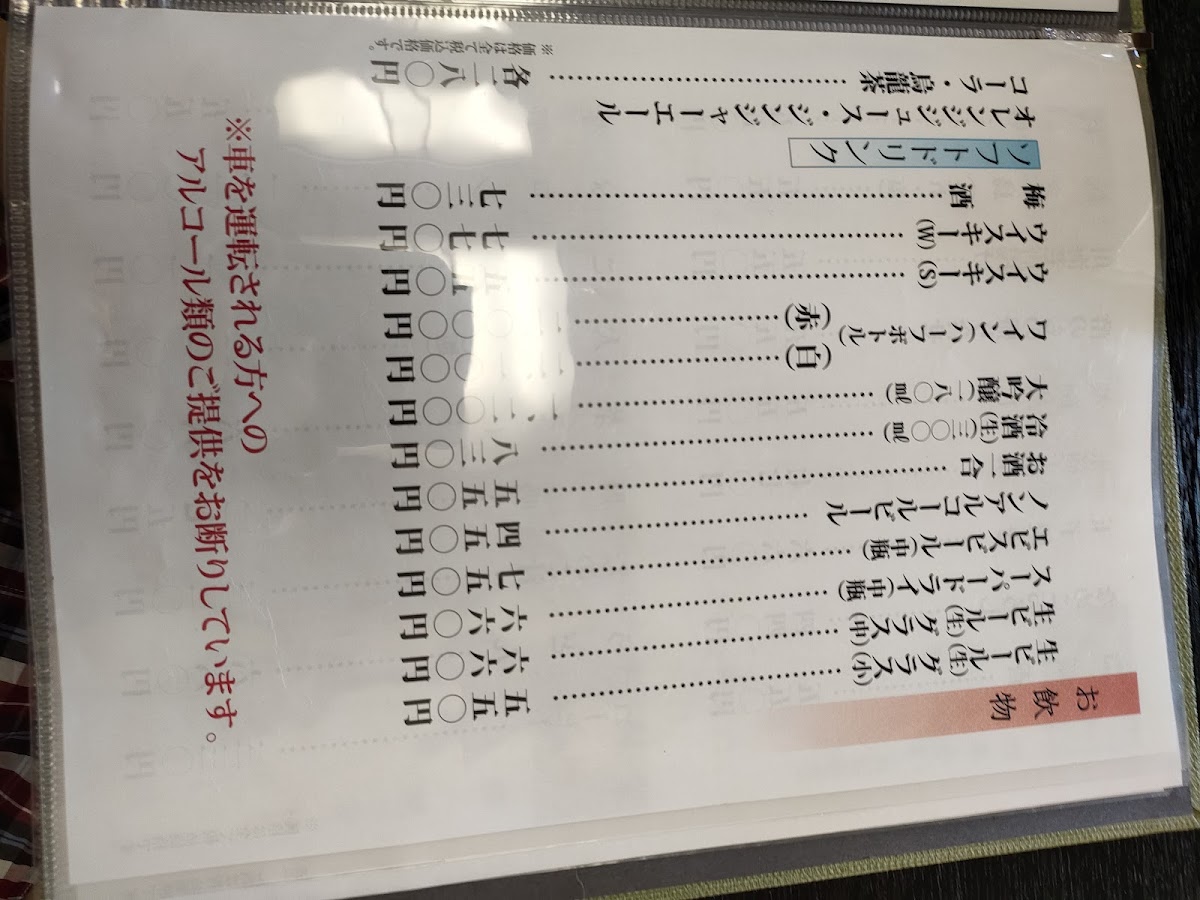 お飲物
生ビール(生)グラス(小)………………五五〇円
生ビール(生)グラス(中)………………六六〇円
スーパードライ(中瓶)………………六六〇円
エビスビール(中瓶)………………七五〇円
ノンアルコールビール………………四五〇円
お酒一合………………五五〇円
冷酒(生)(三〇〇㎖)………………八三〇円
大吟醸(一八〇㎖)………………一、二〇〇円
ワイン(ハーフボトル)
(白)………………〇〇円
(赤)………………〇〇円
ウイスキー(S)………………〇円
ウイスキー(W)………………七七〇円
梅酒………………七三〇円
ソフトドリンク
オレンジジュース・ジンジャーエール
コーラ・烏龍茶………………各二八〇円
※価格は全て税込価格です。
※車を運転される方への
アルコール類のご提供をお断りしています。